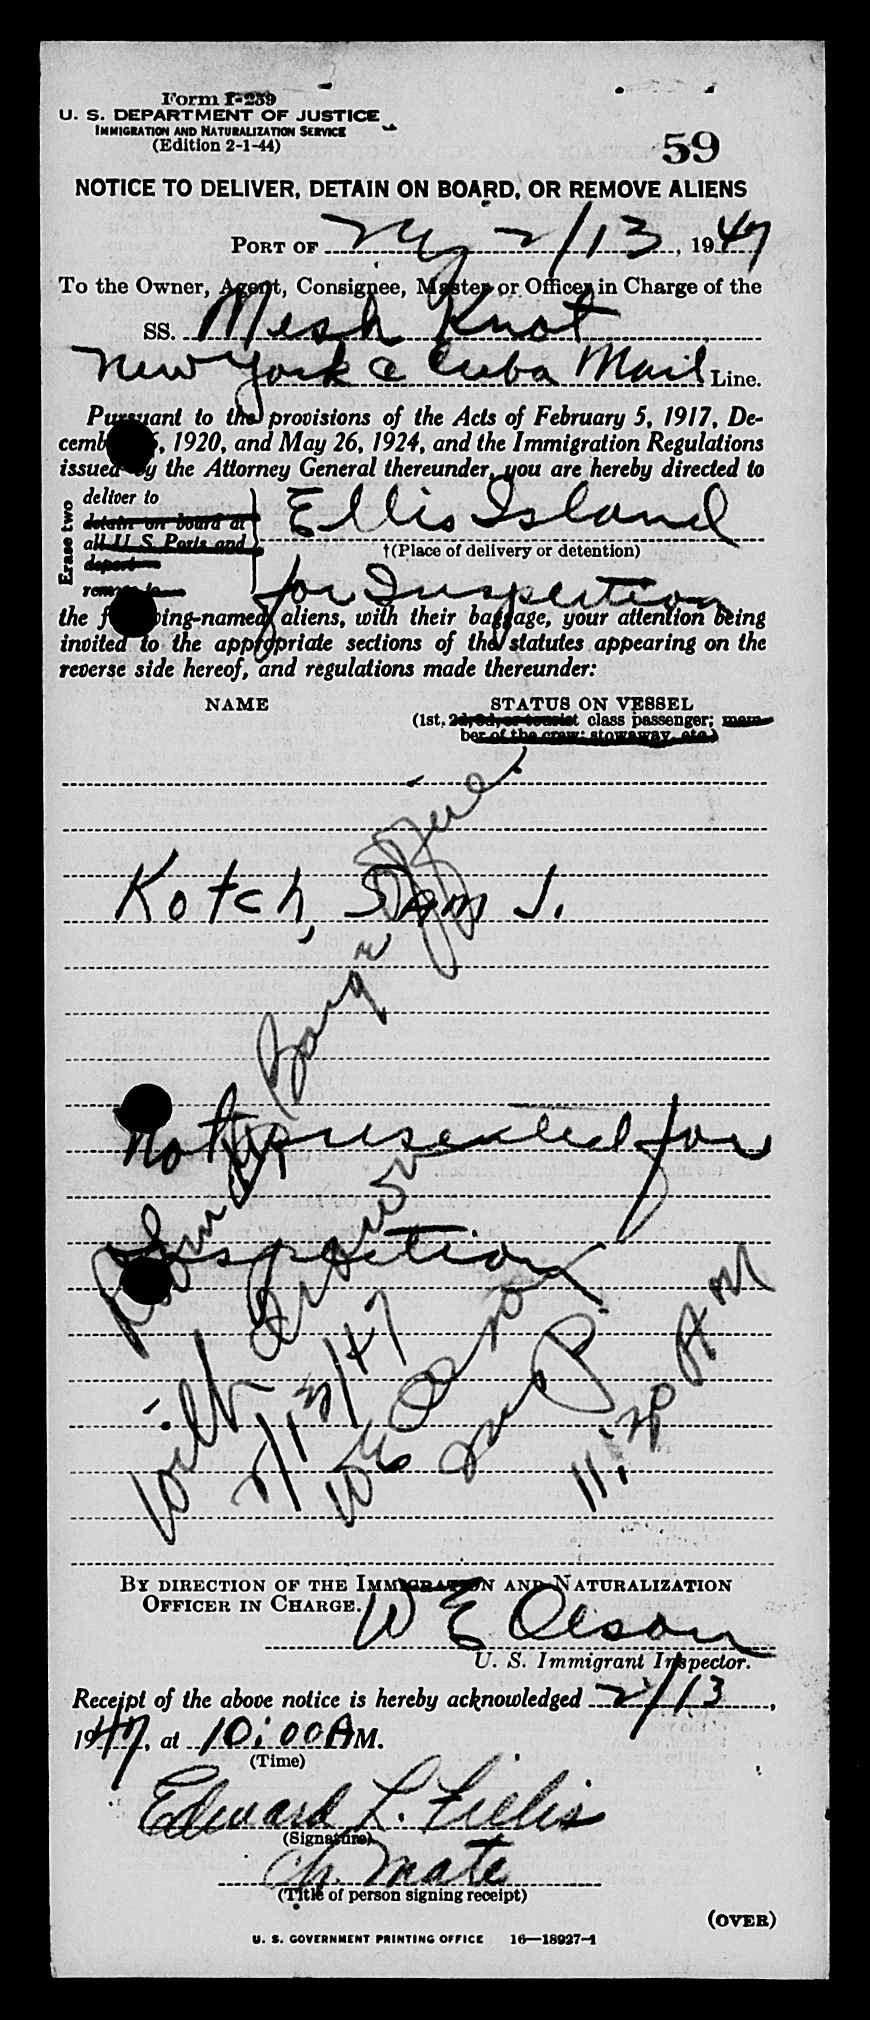 Form I-259
U. S. DEPARTMENT OF JUSTICE
IMMIGRATION AND NATURALIZATION SERVICE
(Edition 2-1-44)
59
NOTICE TO DELIVER, DETAIN ON BOARD, OR REMOVE ALIENS
PORT OF NY 2/13, 1947
To the Owner, Agent, Consignee, Master or Officer in Charge of the
SS. Mesh Knot
New York & Cuba Mail Line.
Pursuant to the provisions of the Acts of February 5, 1917, De-
cember 26, 1920, and May 26, 1924, and the Immigration Regulations
issued by the Attorney General thereunder, you are hereby directed to
Erase two
deliver to
detain on board at
all U S. Ports and
deport
remove to
Ellis Island
†(Place of delivery or detention)
for Inspection
the following-named aliens, with their baggage, your attention being
invited to the appropriate sections of the statutes appearing on the
reverse side hereof, and regulations made thereunder:
NAME
STATUS ON VESSEL
(1st, 2d, 3d, or tourist class passenger; mem-
ber of the crew; stowaway, etc.)
Kotch, Sam J.
Barge
not presented for
Inspection
withdrawn
2/13/47
WE Olson
Insp.
11:20 AM
BY DIRECTION OF THE IMMIGRATION AND NATURALIZATION
OFFICER IN CHARGE.
WE Olson
U. S. Immigrant Inspector.
Receipt of the above notice is hereby acknowledged 2/13,
1947, at 10:00 AM.
(Time)
Edward L. Fillis
(Signature)
Ch. Mate
(Title of person signing receipt)
(OVER)
U. S. GOVERNMENT PRINTING OFFICE 16—18927-1